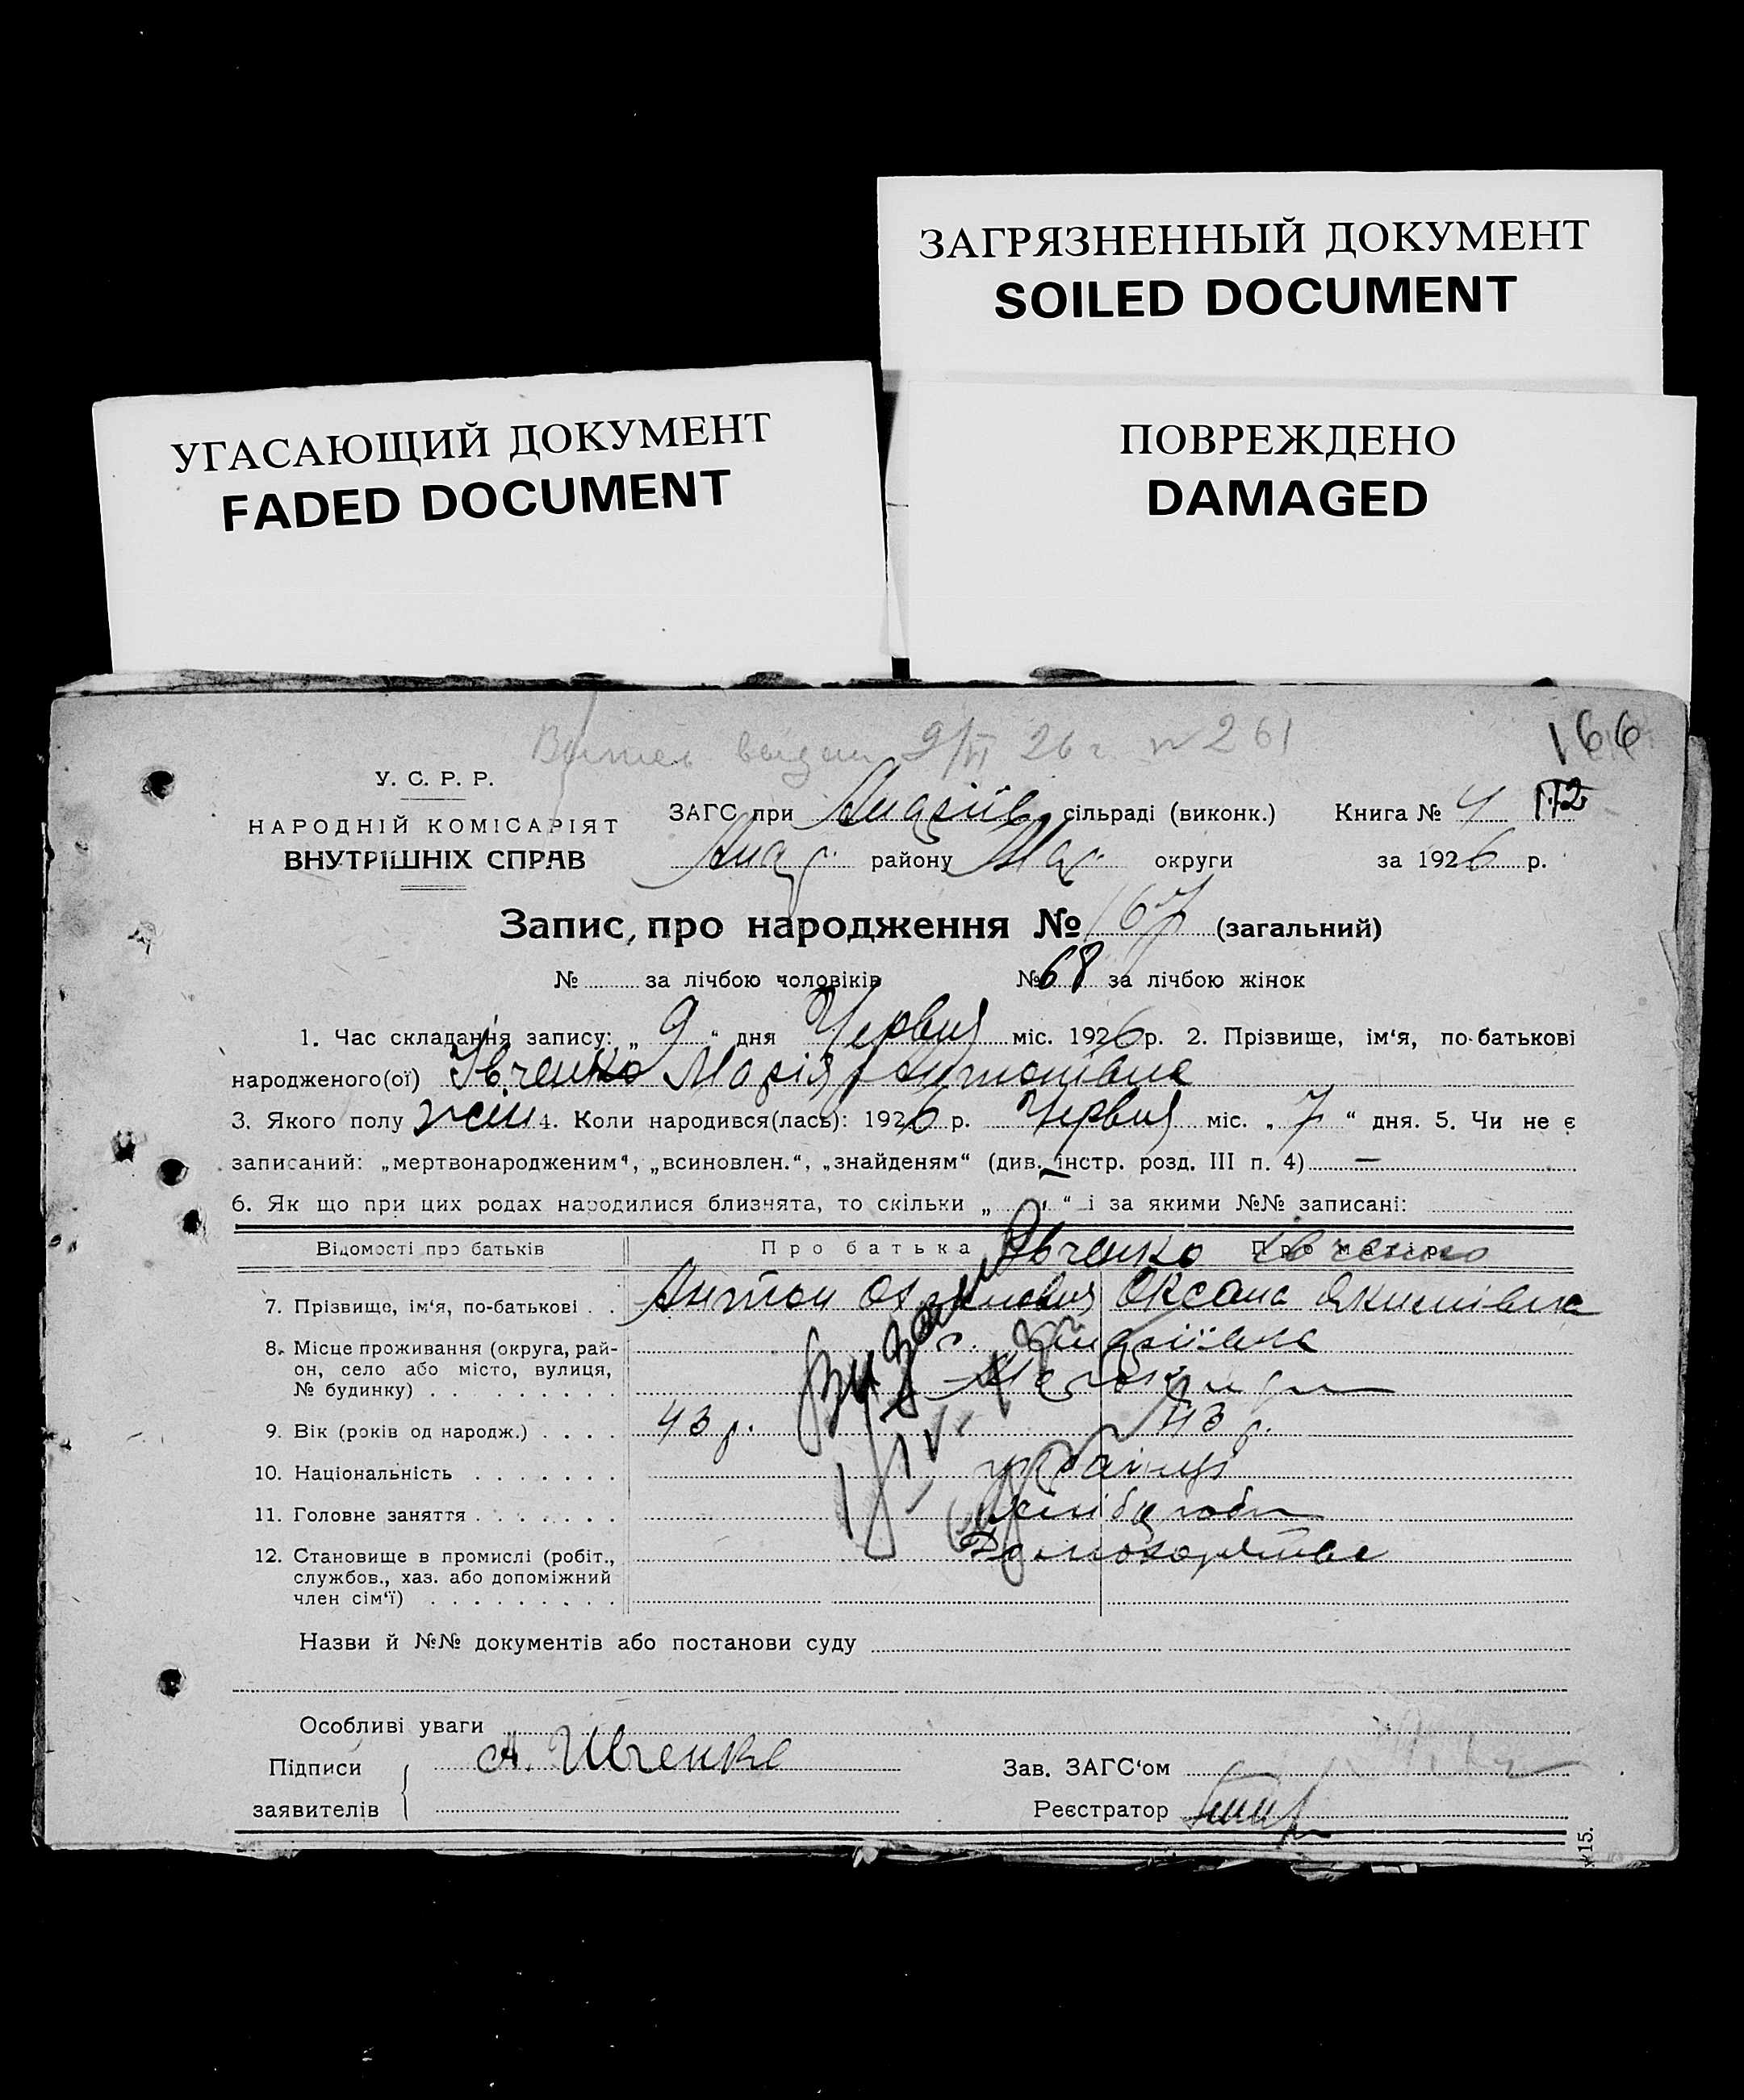 ЗАГРЯЗНЕННЫЙ ДОКУМЕНТ
SOILED DOCUMENT
УГАСАЮЩИЙ ДОКУМЕНТ
FADED DOCUMENT
ПОВРЕЖДЕНО
DAMAGED
9/VI 26 г. № 261
166
У. С. Р. Р.
НАРОДНІЙ КОМІСАРІЯТ
ВНУТРІШНІХ СПРАВ
ЗАГС при сільраді (виконк.) Книга № 4
району Мар. округи за 1926 р.
Запис про народження № 167 (загальний)
№ за лічбою чоловіків № 68 за лічбою жінок
1. Час складання запису: „ 9 “ дня Червня міс. 1926 р. 2. Прізвище, ім‘я, по-батькові
народженого(ої) Івченко Марія Антонівна
3. Якого полу жін 4. Коли народився(лась): 1926 р. Червня міс. „ 7 “ дня. 5. Чи не є
записаний: „мертвонародженим“, „всиновлен.“, „знайденям“ (див. інстр. розд. III п. 4) —
6. Як що при цих родах народилися близнята, то скільки „ — “ і за якими №№ записані:
Відомості про батьків Про батька Івченко Про матір Івченко
7. Прізвище, ім‘я, по-батькові . . Антон Оксана Якимівна
8. Місце проживання (округа, рай-
он, село або місто, вулиця,
№ будинку) . . . . . . . . .
9. Вік (років од народж.) . . . . 43 р. 43 р.
10. Національність . . . . . . . українці
11. Головне заняття . . . . . . . хлібороб
12. Становище в промислі (робіт.,
службов., хаз. або допоміжний
член сім‘ї) . . . . . . . . .
Назви й №№ документів або постанови суду
Особливі уваги
Підписи А. Ивченко Зав. ЗАГС‘ом
заявителів Реєстратор